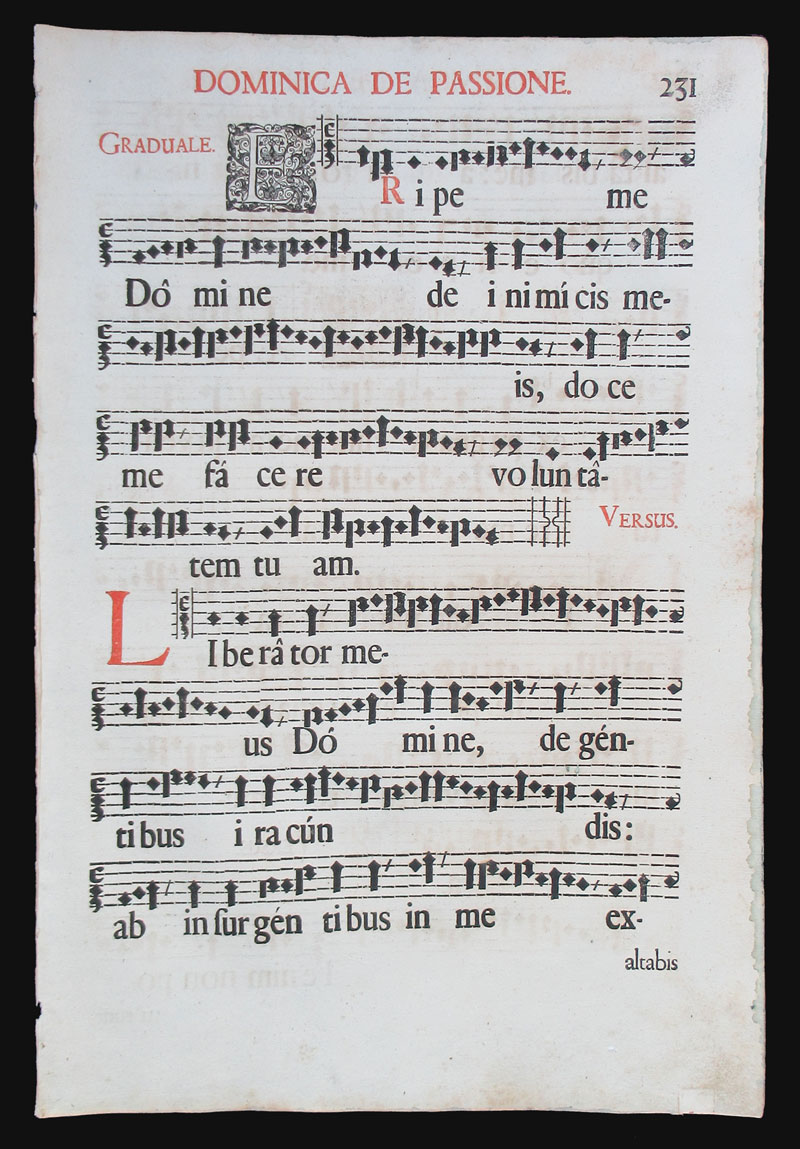 DOMINICA DE PASSIONE. 231
GRADUALE.
E R i pe me
Dô mi ne de i ni mí cis me-
is, do ce
me fá ce re vo lun tâ-
VERSUS.
tem tu am.
L I be râ tor me-
us Dó mi ne, de gén-
ti bus i ra cún dis:
ab in ſur gén ti bus in me ex-
altabis